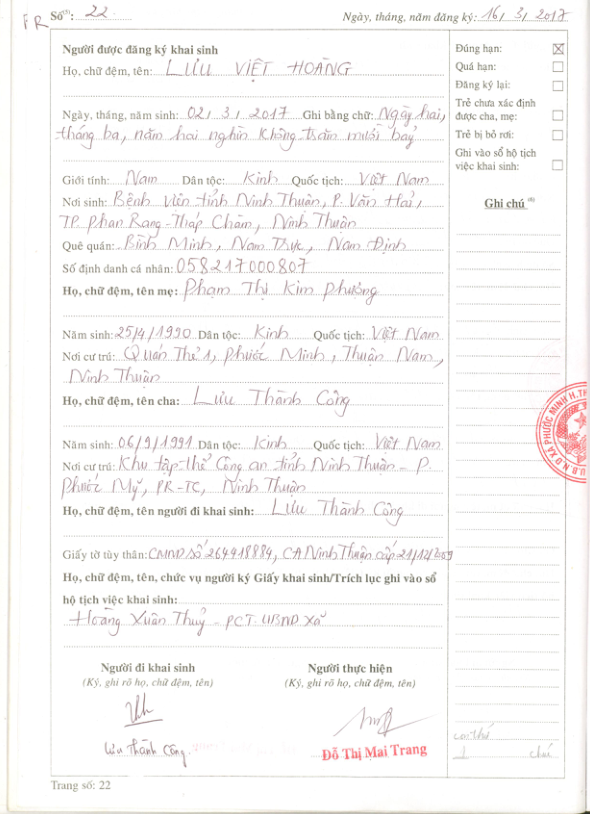 PR Số⁽³⁾: 22
Ngày, tháng, năm đăng ký: 16/ 3/ 2017
Người được đăng ký khai sinh
Họ, chữ đệm, tên: LƯU VIỆT HOÀNG
Ngày, tháng, năm sinh: 02/ 3/ 2017 Ghi bằng chữ: Ngày hai,
tháng ba, năm hai nghìn không trăm mười bảy
Giới tính: Nam Dân tộc: Kinh Quốc tịch: Việt Nam
Nơi sinh: Bệnh viện tỉnh Ninh Thuận, P. Văn Hải,
TP. Phan Rang - Tháp Chàm, Ninh Thuận
Quê quán: Bình Minh, Nam Trực, Nam Định
Số định danh cá nhân: 058217000807
Họ, chữ đệm, tên mẹ: Phạm Thị Kim Phượng
Năm sinh: 25/4/1990 Dân tộc: Kinh Quốc tịch: Việt Nam
Nơi cư trú: Quán Thẻ 1, Phước Minh, Thuận Nam,
Ninh Thuận
Họ, chữ đệm, tên cha: Lưu Thành Công
Năm sinh: 06/9/1991 Dân tộc: Kinh Quốc tịch: Việt Nam
Nơi cư trú: Khu tập thể Công an tỉnh Ninh Thuận - P.
Phước Mỹ, PR-TC, Ninh Thuận
Họ, chữ đệm, tên người đi khai sinh: Lưu Thành Công
Giấy tờ tùy thân: CMND số 264418884, CA Ninh Thuận cấp 21/12/2009
Họ, chữ đệm, tên, chức vụ người ký Giấy khai sinh/Trích lục ghi vào sổ
hộ tịch việc khai sinh:
Hoàng Xuân Thuỷ - PCT. UBND xã
Người đi khai sinh
(Ký, ghi rõ họ, chữ đệm, tên)
Lưu Thành Công
Người thực hiện
(Ký, ghi rõ họ, chữ đệm, tên)
Đỗ Thị Mai Trang
Đúng hạn:
Quá hạn:
Đăng ký lại:
Trẻ chưa xác định
được cha, mẹ:
Trẻ bị bỏ rơi:
Ghi vào sổ hộ tịch
việc khai sinh:
Ghi chú
U.B.N.D XÃ PHƯỚC MINH H.
1
Trang số: 22